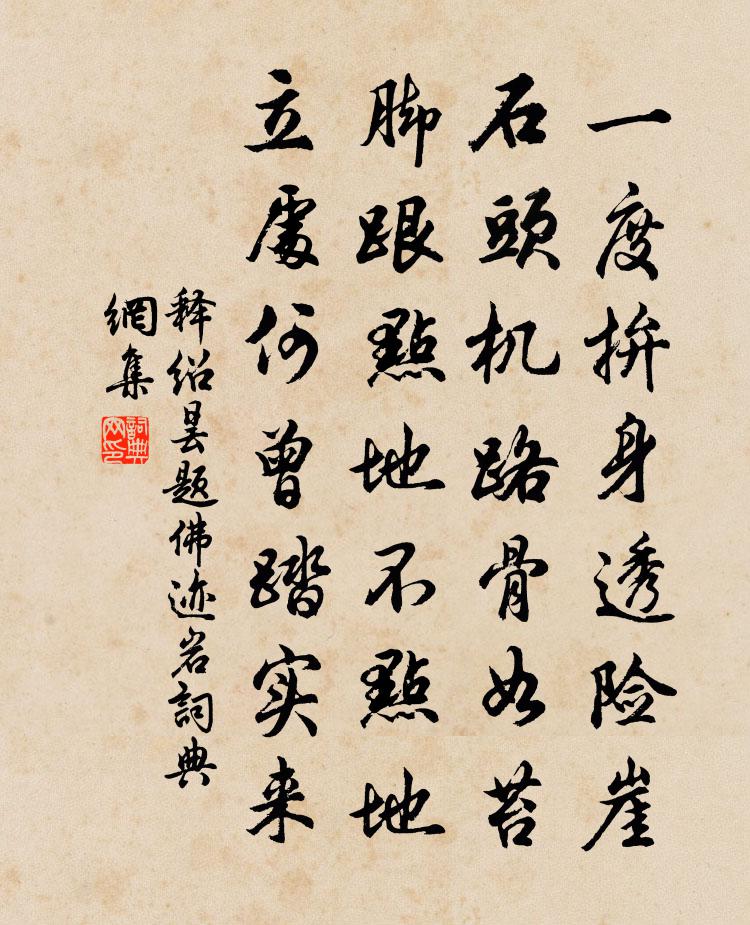 一度拚身透险崖
石頭机路骨如苔
脚跟點地不點地
立處何曾踏实来
释绍昙题佛迹岩詞典
網集
詞典
网印